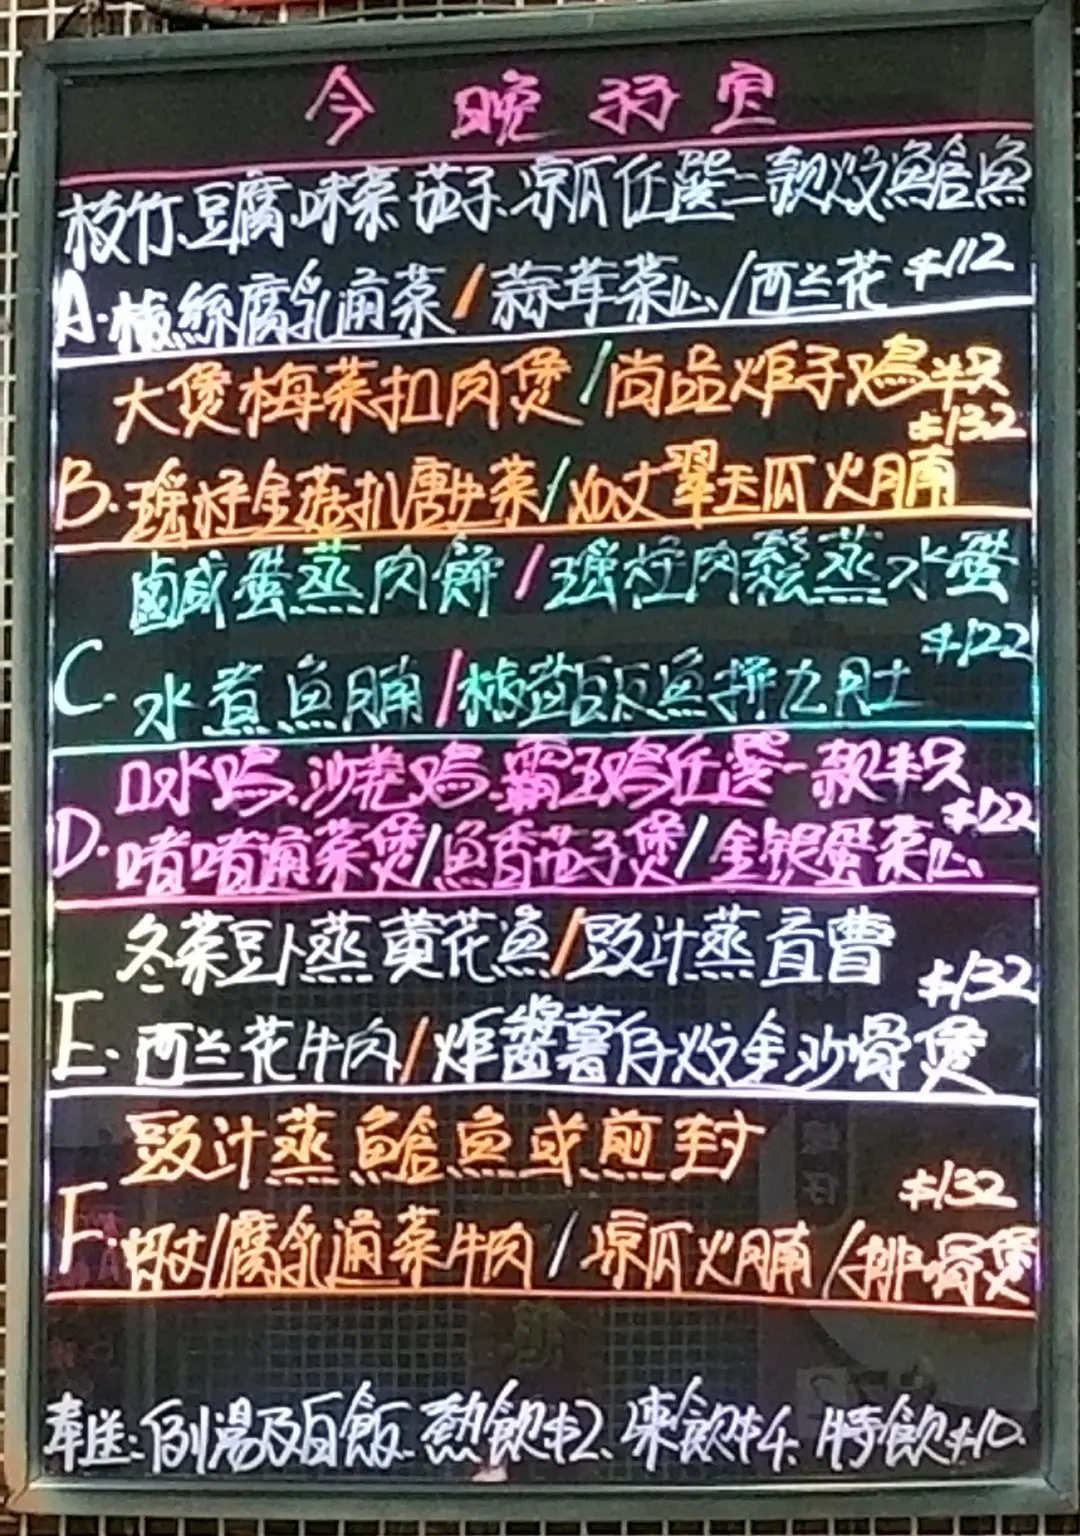 今晚好宜
枝竹.豆腐.味菜.茄子.凉瓜任選二款炆鱠魚
A.椒絲腐乳通菜/蒜茸菜心/西兰花 $112
大煲梅菜扣肉煲/尚品炸子鸡半只
$132
B.瑤柱金菇扒唐生菜/如丈翠玉瓜火腩
鹵咸蛋蒸肉餅/瑤柱肉鬆蒸水蛋
$122
C.水煮魚腩/椒鹽九肚
口水鸡.沙羌鸡.霸王鸡任選一款半只
$122
D.啫啫通菜煲/魚香茄子煲/金银蛋菜心
冬菜豆卜蒸黄花魚/豉汁蒸盲曹
$132
E.西兰花牛肉/炸醬薯仔炆金沙骨煲
豉汁蒸鱠魚或煎封
$132
F.虾丈/腐乳通菜牛肉/凉瓜火腩/排骨煲
奉送:例湯及白飯.热飲$2.凍飲$4.特飲$10.